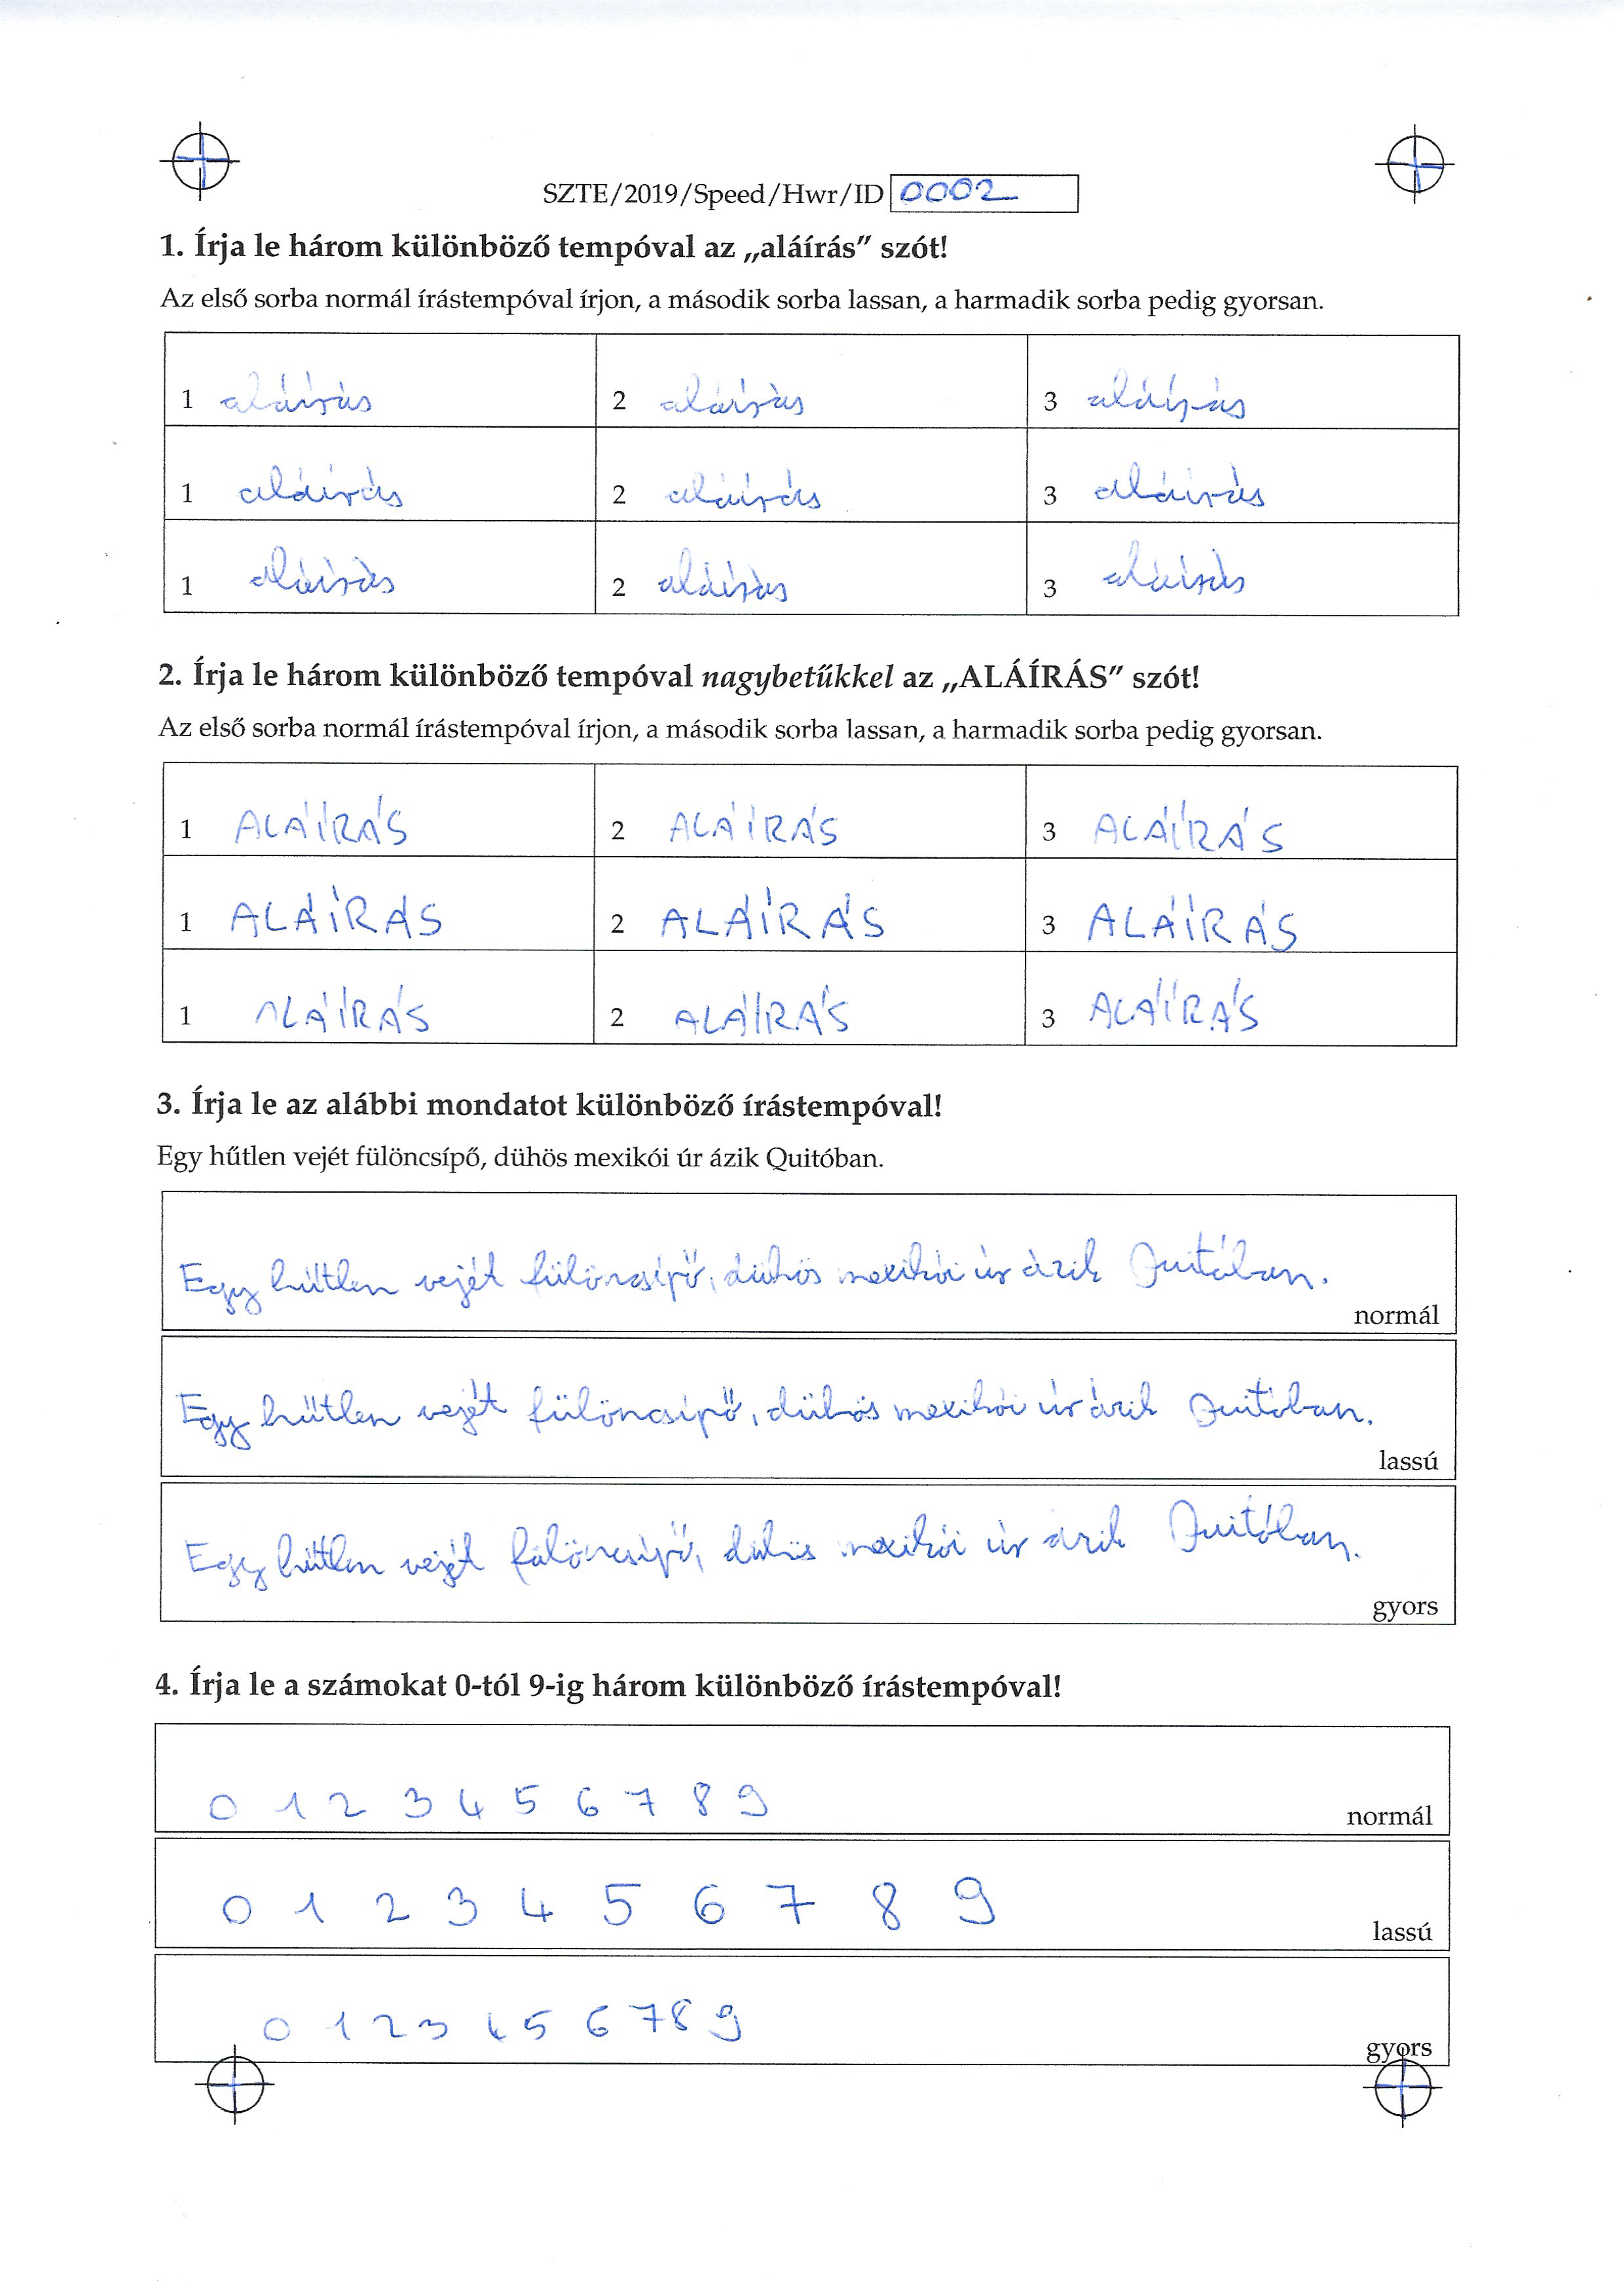 SZTE/2019/Speed/Hwr/ID 0002
1. Írja le három különböző tempóval az „aláírás” szót!
Az első sorba normál írástempóval írjon, a második sorba lassan, a harmadik sorba pedig gyorsan.
1 aláírás 2 aláírás 3 aláírás
1 aláírás 2 aláírás 3 aláírás
1 aláírás 2 aláírás 3 aláírás
2. Írja le három különböző tempóval nagybetűkkel az „ALÁÍRÁS” szót!
Az első sorba normál írástempóval írjon, a második sorba lassan, a harmadik sorba pedig gyorsan.
1 ALÁÍRÁS 2 ALÁÍRÁS 3 ALÁÍRÁS
1 ALÁÍRÁS 2 ALÁÍRÁS 3 ALÁÍRÁS
1 ALÁÍRÁS 2 ALÁÍRÁS 3 ALÁÍRÁS
3. Írja le az alábbi mondatot különböző írástempóval!
Egy hűtlen vejét fülöncsípő, dühös mexikói úr ázik Quitóban.
Egy hűtlen vejét fülöncsípő, dühös mexikói úr ázik Quitóban.
normál
Egy hűtlen vejét fülöncsípő, dühös mexikói úr ázik Quitóban.
lassú
Egy hűtlen vejét fülöncsípő, dühös mexikói úr ázik Quitóban.
gyors
4. Írja le a számokat 0-tól 9-ig három különböző írástempóval!
0 1 2 3 4 5 6 7 8 9
normál
0 1 2 3 4 5 6 7 8 9
lassú
0 1 2 3 4 5 6 7 8 9
gyors